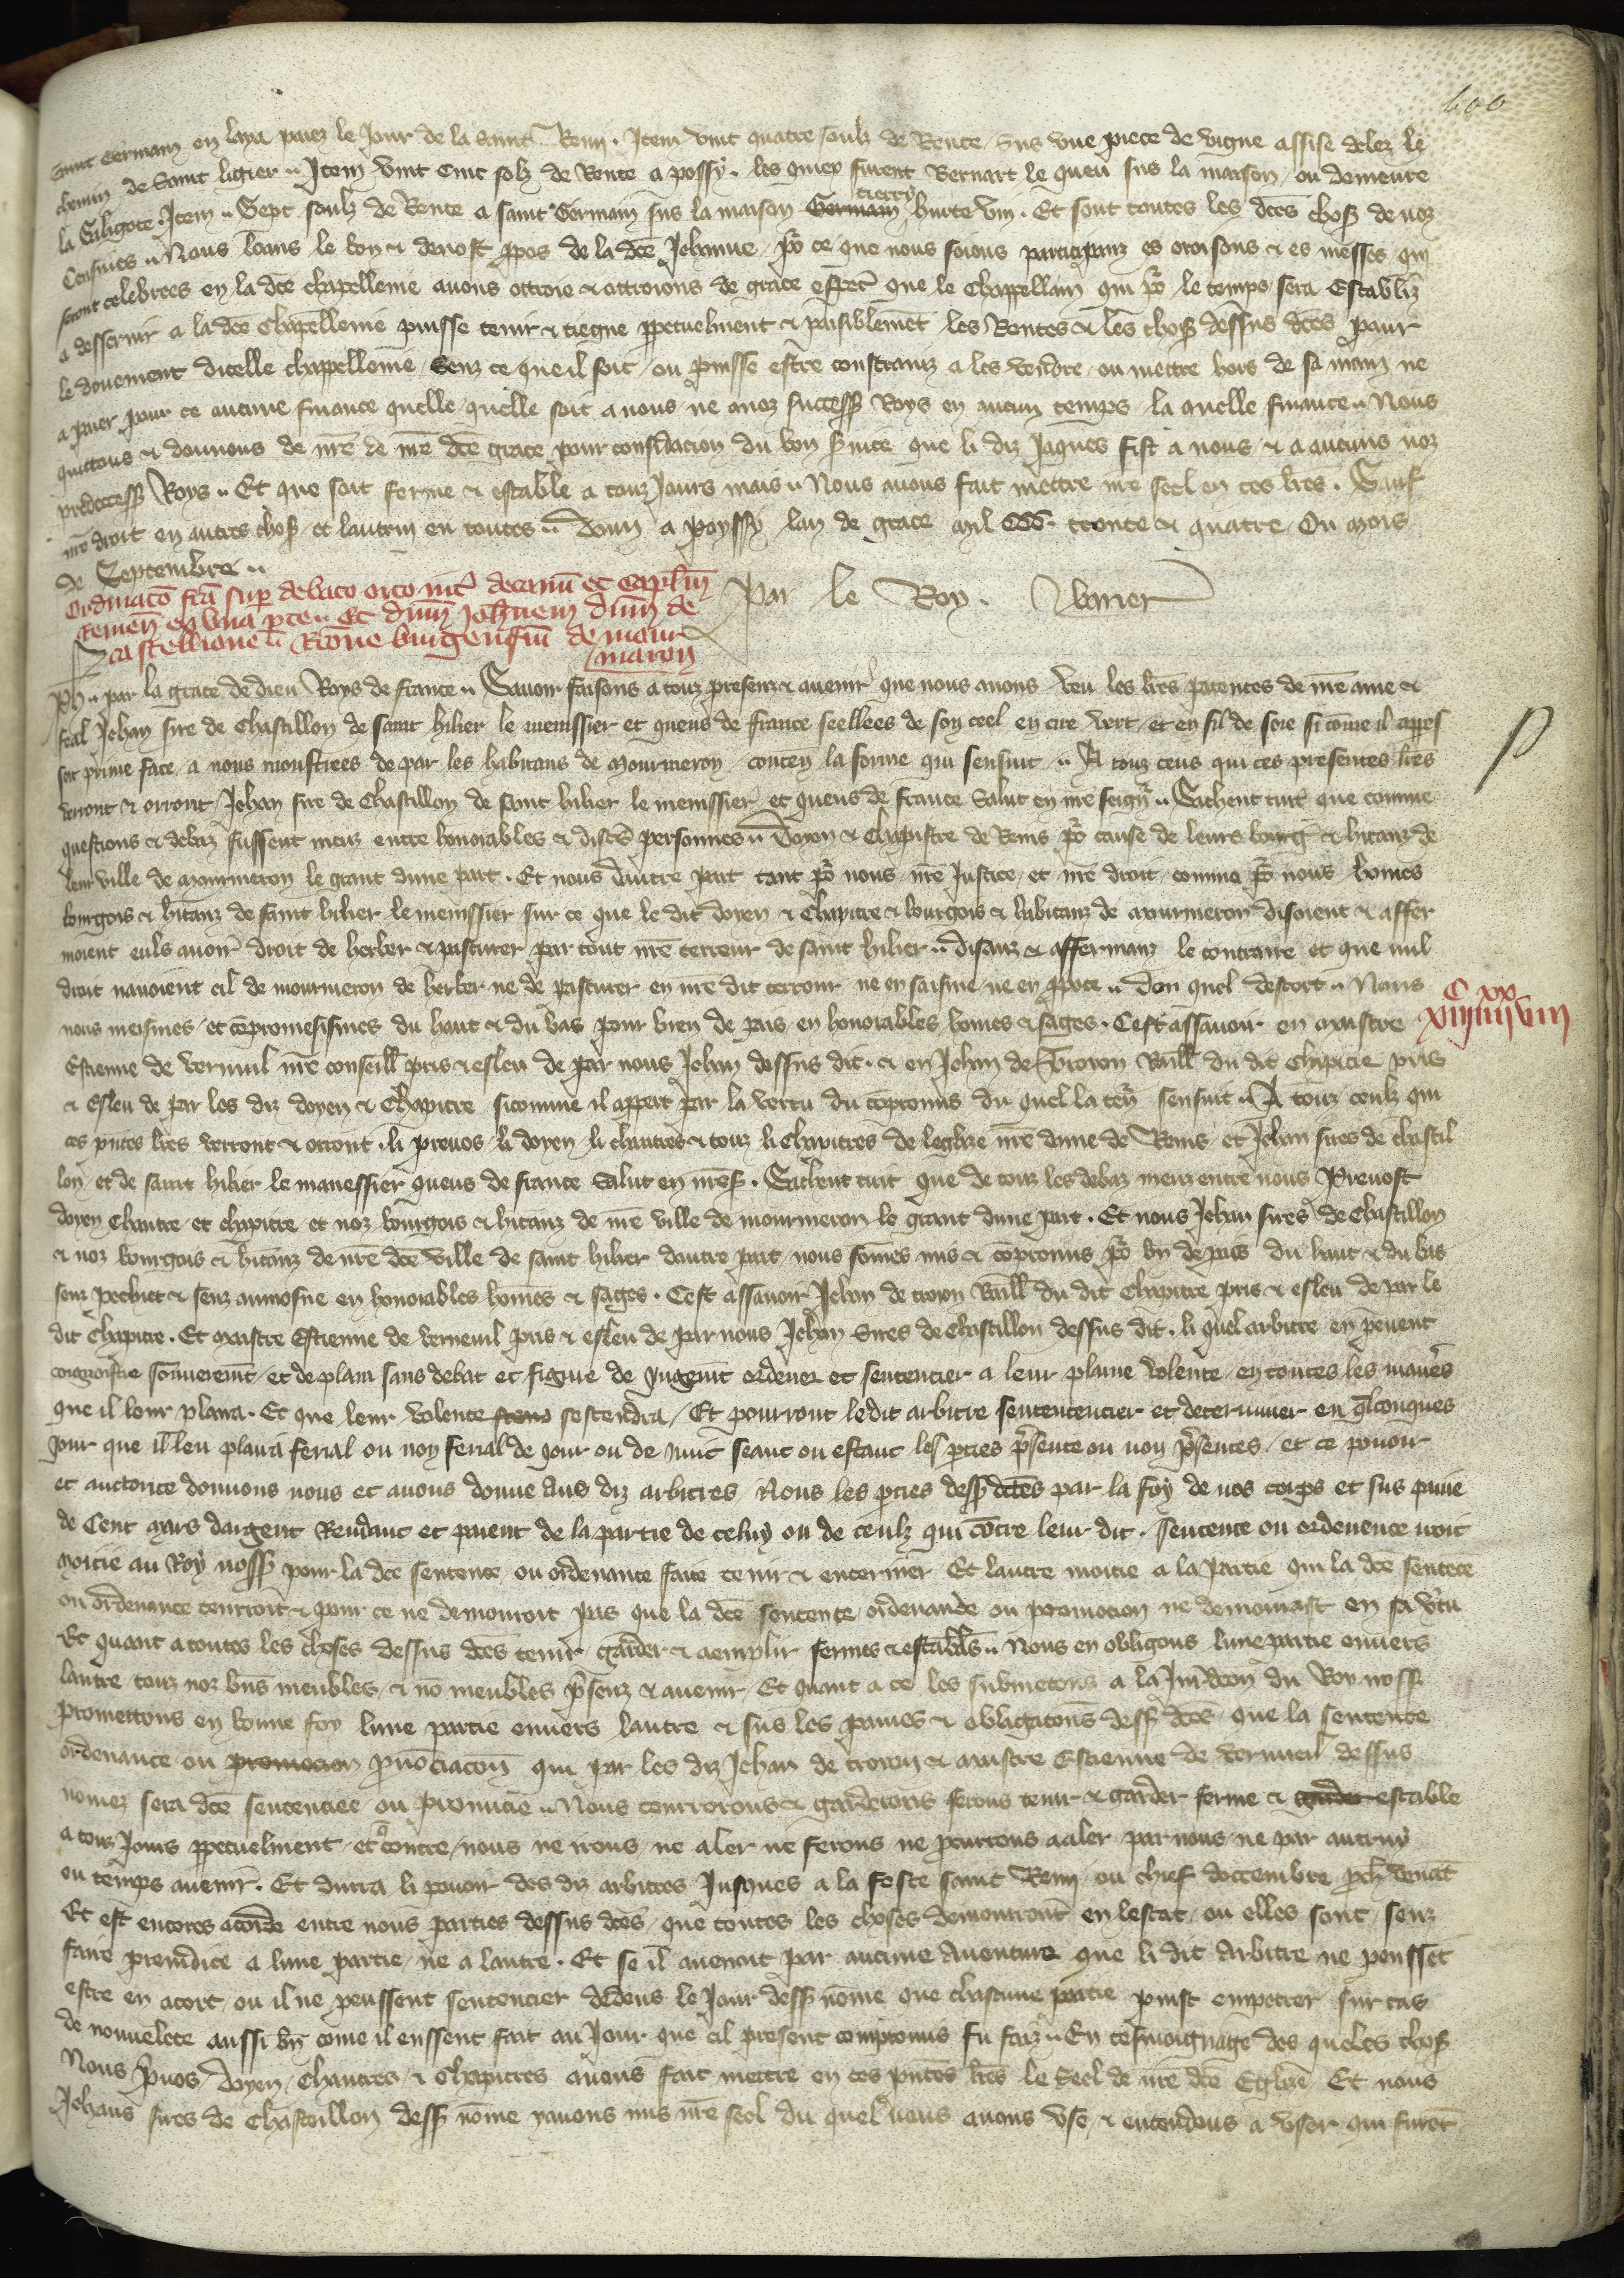 600
Saint Germain en laya paiez le Jour de la Saint Remi. Item vint quatre soulz de Rente sus vne piece de vigne assise delez le
chemin de Saint ligier. Item vint cinc solz de Rente a possy. les quiex furent Bernart le queu sus la maison ou demeure
tierry
la Saligote. Item Sept soulz de Rente a saint Germain sus la maison Germain hurte vin. Et sont toutes les dces choses de noz
Censiues. Nous loans le bon & deuost ppos de la dce Jehanne, por ce que nous soions participanz es oroisons & es messes qui
seront celebrees en la dce chapellenie auons ottroie & ottroions de grace especl que le Chappellain qui por le temps sera Establiz
a desseruir a la dce Chapellenie puisse tenir & tiegne ppetuelment & paisiblemet les Rentes & les choses dessus dces pour
le douement dicelle chappellenie senz ce que il soit ou puisse estre constrainz a les vendre ou mettre hors de sa main ne
a paier pour ce aucune finance quelle quelle soit a nous ne a noz success Roys en aucun temps la quelle finance Nous
quittons & donnons de nre de nre dce grace pour consideracion du bon seruice que li diz Jaques fist a nous & a aucuns noz
predecess Roys. Et que soit ferme & estable a touz Jours mais Nous auons fait mettre nre seel en ces lres. Sauf
nre droit en autres choses et lautrui en toutes. Donn a Poyssy lan de grace mil CCC. trente & quatre Ou mois
de Septembre
Par le Roy. Vbrier
Ordinato fca sup debato orto int decanu et caplm
Remen ex vna pte Et dnm Johnem dnm de
Castellione Rone burgensiu de mour
maron
Ph par la grace de dieu Roys de france. Sauoir faisons a touz presenz & auenir que nous auons veu les lres patentes de nre ame &
feal Jehan sire de Chastillon de saint hilier le menissier et queus de france seellees de son seel en cire vert et en fil de soie si come il appert
soit prime face a nous monstrees de par les habitans de mourmeron conten la forme qui sensuit. A touz ceus qui ces presentes lres
verront & orront Jehan sire de Chastillon de saint hilier le menissier et queus de france Salut en nre seign. Sachent tuit que comme
questions & debaz fussent meuz entre honorables & discres personnes Doyen & Chapistre de Reins por cause de leurs bourg & hitanz de
leur ville de mourmeron le grant dune part. Et nous dautre part tant por nous nre Justice et nre droit comme por nous homes
bourgois & hitanz de saint hilier le menissier sur ce que le dit doyen & Chapitre & bourgois & habitanz de mourmeron disoient & affer
moient euls auoir droit de herber & pasturer par tout nre terreur de saint hilier disanz & affermanz le contraire et que nul
droit nauoient cil de mourmeron de herber ne de pasturer en nre dit terrour ne en saisine ne en ppte. Don quel descort Nous
nous meismes et copromesismes du haut & du bas pour bien de pais en honorables homes & sages. Cest assauoir en maistre
Estienne de vernuil nre conseill pris & esleu de par nous Jehan dessus dit. & en Jehan de Troion Baill du dit Chapitre pris
& Esleu de par les diz doyen & Chapitre sicomme il appert par la vertu du copromis du quel la ten sensuit. A touz ceulz qui
ces pntes lres verront & orront. li preuos li doyen li chantres & touz li Chapitres de leglise nre dame de Reins et Jehan sires de chastil
lon et de saint hilier le manessier queus de france Salut en nre s. Sachent tuit que de touz les debaz meuz entre nous Preuost
doyen Chantre et chapitre et noz bourgois & hitanz de nre ville de mourmeron le grant dune part. Et nous Jehan sires de Chastillon
& noz bourgois & hitanz de nre dce ville de saint hilier dautre part nous somes mis & copromis por bn de pais du haut & du bas
senz pechiet & senz aumosne en honorables homes & sages. Cest assauoir Jehan de troion Baill du dit Chapitre pris & esleu de par le
dit Chapitre. Et maistre Estienne de verneuil pris & esleu de par nous Jehan Sires de Chastillon dessus dit. li quel arbitre en peuent
congnoistre sommerement et de plain sans debat et figure de Jugemt ordener et sentencier a leur plaine volente en toutes les manieres
que il leur plaira. Et que leur volente sestendra. Et pourront ledit arbitre sentencier et determiner en qlconques
jour que il leu plaira ferial ou non ferial de jour ou de nuit seant ou estant les pties presente ou non presentes et ce pouoir
et auctorite donnons nous et auons donne aus diz arbitres Nous les pties dess dces par la foy de nos corps et sus paine
de Cent mars dargent Rendant et paient de la partie de celuy ou de ceulz qui cotre leur dit. Sentence ou ordenence uoit
moitie au Roy noss pour la dce sentence ou ordenance faire tenir & enteriner Et lautre moitie a la partie qui la dce sentece
ou ordenance tenrroit & pour ce ne demorroit pas que la dce sentente ordenande ou promocion ne demourast en sa vtu
Et quant a toutes les choses dessus dces tenir garder & aemplir fermes & estables Nous en obligons lune partie enuers
lautre touz noz bns meubles & no meubles presenz & auenir. Et quant a ce les submetons a la Juridicon du Roy noss
promettons en bonne foy lune partie enuers lautre & sus les paines & obligations dess dces que la sentence
ordenance ou promocion pronociacon qui par les diz Jehan de troion & maistre Estienne de verneuil dessus
nomez sera dce sentenciee ou pronunciee Nous tenrrons & garderons ferons tenir & garder ferme & garder estable
a touz Jours ppetuelment et contre nous ne irons ne aler ne ferons ne pcurrons aaler par nous ne par autruy
ou temps auenir. Et durra li pouoir des diz arbitres Jusques a la feste saint Remi ou chief doctembre pch venat
Et est encores acorde entre nous parties dessus dces que toutes les choses demourront en lestat ou elles sont senz
faire preiudice a lune partie ne a lautre. Et se il auenoit par aucune auenture que li dit arbitre ne peusset
estre en acort ou il ne peussent sentencier dedens le Jour dess nome que chascune partie puist empetrer sur cas
de nouuelete aussi bn come il eussent fait au Jour que cil present compromis fu faiz. En tesmoignage des queles choses
Nous Preuos Doyen Chantres & Chapitres auons fait mettre en ces pntes lres le Seel de nre dce Eglise Et nous
Jehans sires de Chasteillon dess nome y auons mis nre seel du quel nous auons vse & entendons a vser qui furet